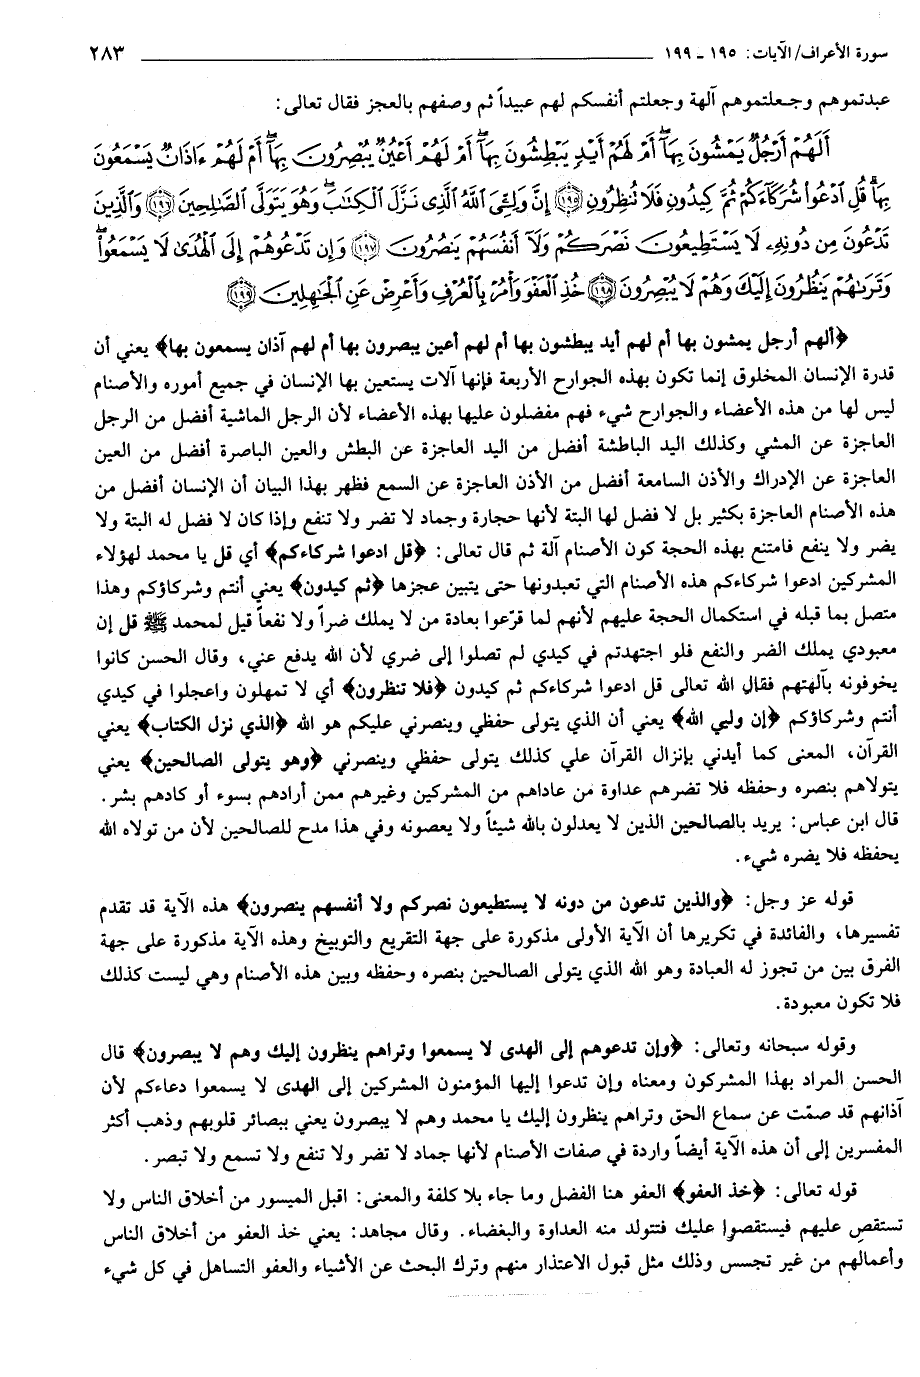 سورة الأعراف/ الآيات: ١٩٥ ـ ١٩٩ ٢٨٣
عبدتموهم وجعلتموهم آلهة وجعلتم أنفسكم لهم عبيداً ثم وصفهم بالعجز فقال تعالى:
أَلَهُمْ أَرْجُلٌ يَمْشُونَ بِهَآ أَمْ لَهُمْ أَيْدٍ يَبْطِشُونَ بِهَآ أَمْ لَهُمْ أَعْيُنٌ يُبْصِرُونَ بِهَآ أَمْ لَهُمْ ءَاذَانٌ يَسْمَعُونَ
بِهَا قُلِ ادْعُوا شُرَكَآءَكُمْ ثُمَّ كِيدُونِ فَلَا تُنظِرُونِ ﴿١٩٥﴾ إِنَّ وَلِـِّيَ اللَّهُ الَّذِى نَزَّلَ الْكِتَابَ وَهُوَ يَتَوَلَّى الصَّالِحِينَ ﴿١٩٦﴾ وَالَّذِينَ
تَدْعُونَ مِن دُونِهِۦ لَا يَسْتَطِيعُونَ نَصْرَكُمْ وَلَآ أَنفُسَهُمْ يَنصُرُونَ ﴿١٩٧﴾ وَإِن تَدْعُوهُمْ إِلَى الْهُدَىٰ لَا يَسْمَعُوا
وَتَرَىٰهُمْ يَنظُرُونَ إِلَيْكَ وَهُمْ لَا يُبْصِرُونَ ﴿١٩٨﴾ خُذِ الْعَفْوَ وَأْمُرْ بِالْعُرْفِ وَأَعْرِضْ عَنِ الْجَاهِلِينَ ﴿١٩٩﴾
﴿ألهم أرجل يمشون بها أم لهم أيد يبطشون بها أم لهم أعين يبصرون بها أم لهم آذان يسمعون بها﴾ يعني أن
قدرة الإنسان المخلوق إنما تكون بهذه الجوارح الأربعة فإنها آلات يستعين بها الإنسان في جميع أموره والأصنام
ليس لها من هذه الأعضاء والجوارح شيء فهم مفضلون عليها بهذه الأعضاء لأن الرجل الماشية أفضل من الرجل
العاجزة عن المشي وكذلك اليد الباطشة أفضل من اليد العاجزة عن البطش والعين الباصرة أفضل من العين
العاجزة عن الإدراك والأذن السامعة أفضل من الأذن العاجزة عن السمع فظهر بهذا البيان أن الإنسان أفضل من
هذه الأصنام العاجزة بكثير بل لا فضل لها البتة لأنها حجارة وجماد لا تضر ولا تنفع وإذا كان لا فضل له البتة ولا
يضر ولا ينفع فامتنع بهذه الحجة كون الأصنام آلة ثم قال تعالى: ﴿قل ادعوا شركاءكم﴾ أي قل يا محمد لهؤلاء
المشركين ادعوا شركاءكم هذه الأصنام التي تعبدونها حتى يتبين عجزها ﴿ثم كيدون﴾ يعني أنتم وشركاؤكم وهذا
متصل بما قبله في استكمال الحجة عليهم لأنهم لما قرّعوا بعادة من لا يملك ضراً ولا نفعاً قيل لمحمد ﷺ قل إن
معبودي يملك الضر والنفع فلو اجتهدتم في كيدي لم تصلوا إلى ضري لأن الله يدفع عني، وقال الحسن كانوا
يخوفونه بآلهتهم فقال الله تعالى قل ادعوا شركاءكم ثم كيدون ﴿فلا تنظرون﴾ أي لا تمهلون واعجلوا في كيدي
أنتم وشركاؤكم ﴿إن وليي الله﴾ يعني أن الذي يتولى حفظي وينصرني عليكم هو الله ﴿الذي نزل الكتاب﴾ يعني
القرآن، المعنى كما أيدني بإنزال القرآن علي كذلك يتولى حفظي وينصرني ﴿وهو يتولى الصالحين﴾ يعني
يتولاهم بنصره وحفظه فلا تضرهم عداوة من عاداهم من المشركين وغيرهم ممن أرادهم بسوء أو كادهم بشر.
قال ابن عباس: يريد بالصالحين الذين لا يعدلون بالله شيئاً ولا يعصونه وفي هذا مدح للصالحين لأن من تولاه الله
يحفظه فلا يضره شيء.
قوله عز وجل: ﴿والذين تدعون من دونه لا يستطيعون نصركم ولا أنفسهم ينصرون﴾ هذه الآية قد تقدم
تفسيرها، والفائدة في تكريرها أن الآية الأولى مذكورة على جهة التقريع والتوبيخ وهذه الآية مذكورة على جهة
الفرق بين من تجوز له العبادة وهو الله الذي يتولى الصالحين بنصره وحفظه وبين هذه الأصنام وهي ليست كذلك
فلا تكون معبودة.
وقوله سبحانه وتعالى: ﴿وإن تدعوهم إلى الهدى لا يسمعوا وتراهم ينظرون إليك وهم لا يبصرون﴾ قال
الحسن المراد بهذا المشركون ومعناه وإن تدعوا إليها المؤمنون المشركين إلى الهدى لا يسمعوا دعاءكم لأن
آذانهم قد صمّت عن سماع الحق وتراهم ينظرون إليك يا محمد وهم لا يبصرون يعني ببصائر قلوبهم وذهب أكثر
المفسرين إلى أن هذه الآية أيضاً واردة في صفات الأصنام لأنها جماد لا تضر ولا تنفع ولا تسمع ولا تبصر.
قوله تعالى: ﴿خذ العفو﴾ العفو هنا الفضل وما جاء بلا كلفة والمعنى: اقبل الميسور من أخلاق الناس ولا
تستقص عليهم فيستقصوا عليك فتتولد منه العداوة والبغضاء. وقال مجاهد: يعني خذ العفو من أخلاق الناس
وأعمالهم من غير تجسس وذلك مثل قبول الاعتذار منهم وترك البحث عن الأشياء والعفو التساهل في كل شيء